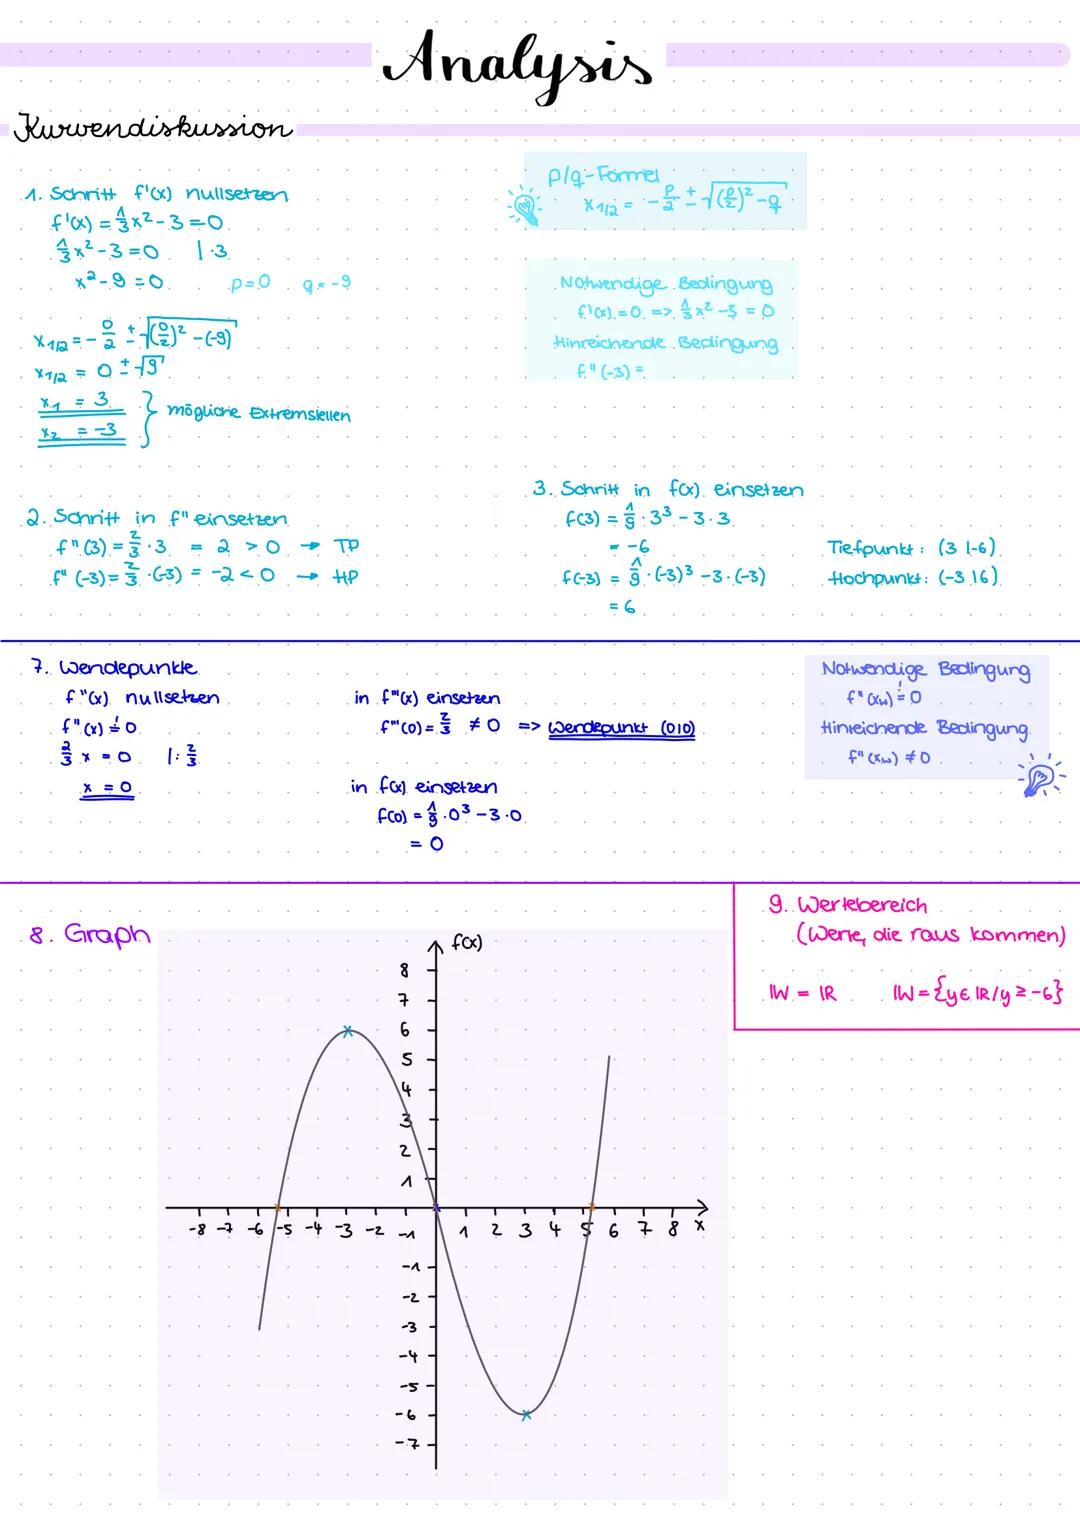 Analysis
Kurvendiskussion
1. Schritt f'(x) nullsetzen
f'(x) = 1/3 x² - 3 = 0
1/3 x² - 3 = 0 | ·3
x² - 9 = 0 p = 0 q = -9
x1/2 = - 0/2 ± √((0/2)² - (-9))
x1/2 = 0 ± √9
x1 = 3
x2 = -3
} mögliche Extremstellen
p/q-Formel
x1/2 = - p/2 ± √((p/2)² - q)
Notwendige Bedingung
f'(x) = 0 => 1/3 x² - 3 = 0
Hinreichende Bedingung
f"(-3) =
2. Schritt in f" einsetzen
f"(3) = 2/3 · 3 = 2 > 0 → TP
f"(-3) = 2/3 · (-3) = -2 < 0 → HP
3. Schritt in f(x) einsetzen
f(3) = 1/9 · 3³ - 3 · 3
= -6
f(-3) = 1/9 · (-3)³ - 3 · (-3)
= 6
Tiefpunkt: (3 | -6)
Hochpunkt: (-3 | 6)
7. Wendepunkte
f"(x) nullsetzen
f"(x) != 0
2/3 x = 0 | : 2/3
x = 0
in f'''(x) einsetzen
f'''(0) = 2/3 ≠ 0 => Wendepunkt (0|0)
in f(x) einsetzen
f(0) = 1/9 · 0³ - 3 · 0
= 0
Notwendige Bedingung
f"(xw) != 0
Hinreichende Bedingung
f"(xw) ≠ 0
8. Graph
f(x)
8
7
6
5
4
3
2
1
-8 -7 -6 -5 -4 -3 -2 -1 1 2 3 4 5 6 7 8 x
-1
-2
-3
-4
-5
-6
-7
9. Wertebereich
(Werte, die raus kommen)
W = ℝ W = {y ∈ ℝ / y ≥ -6}